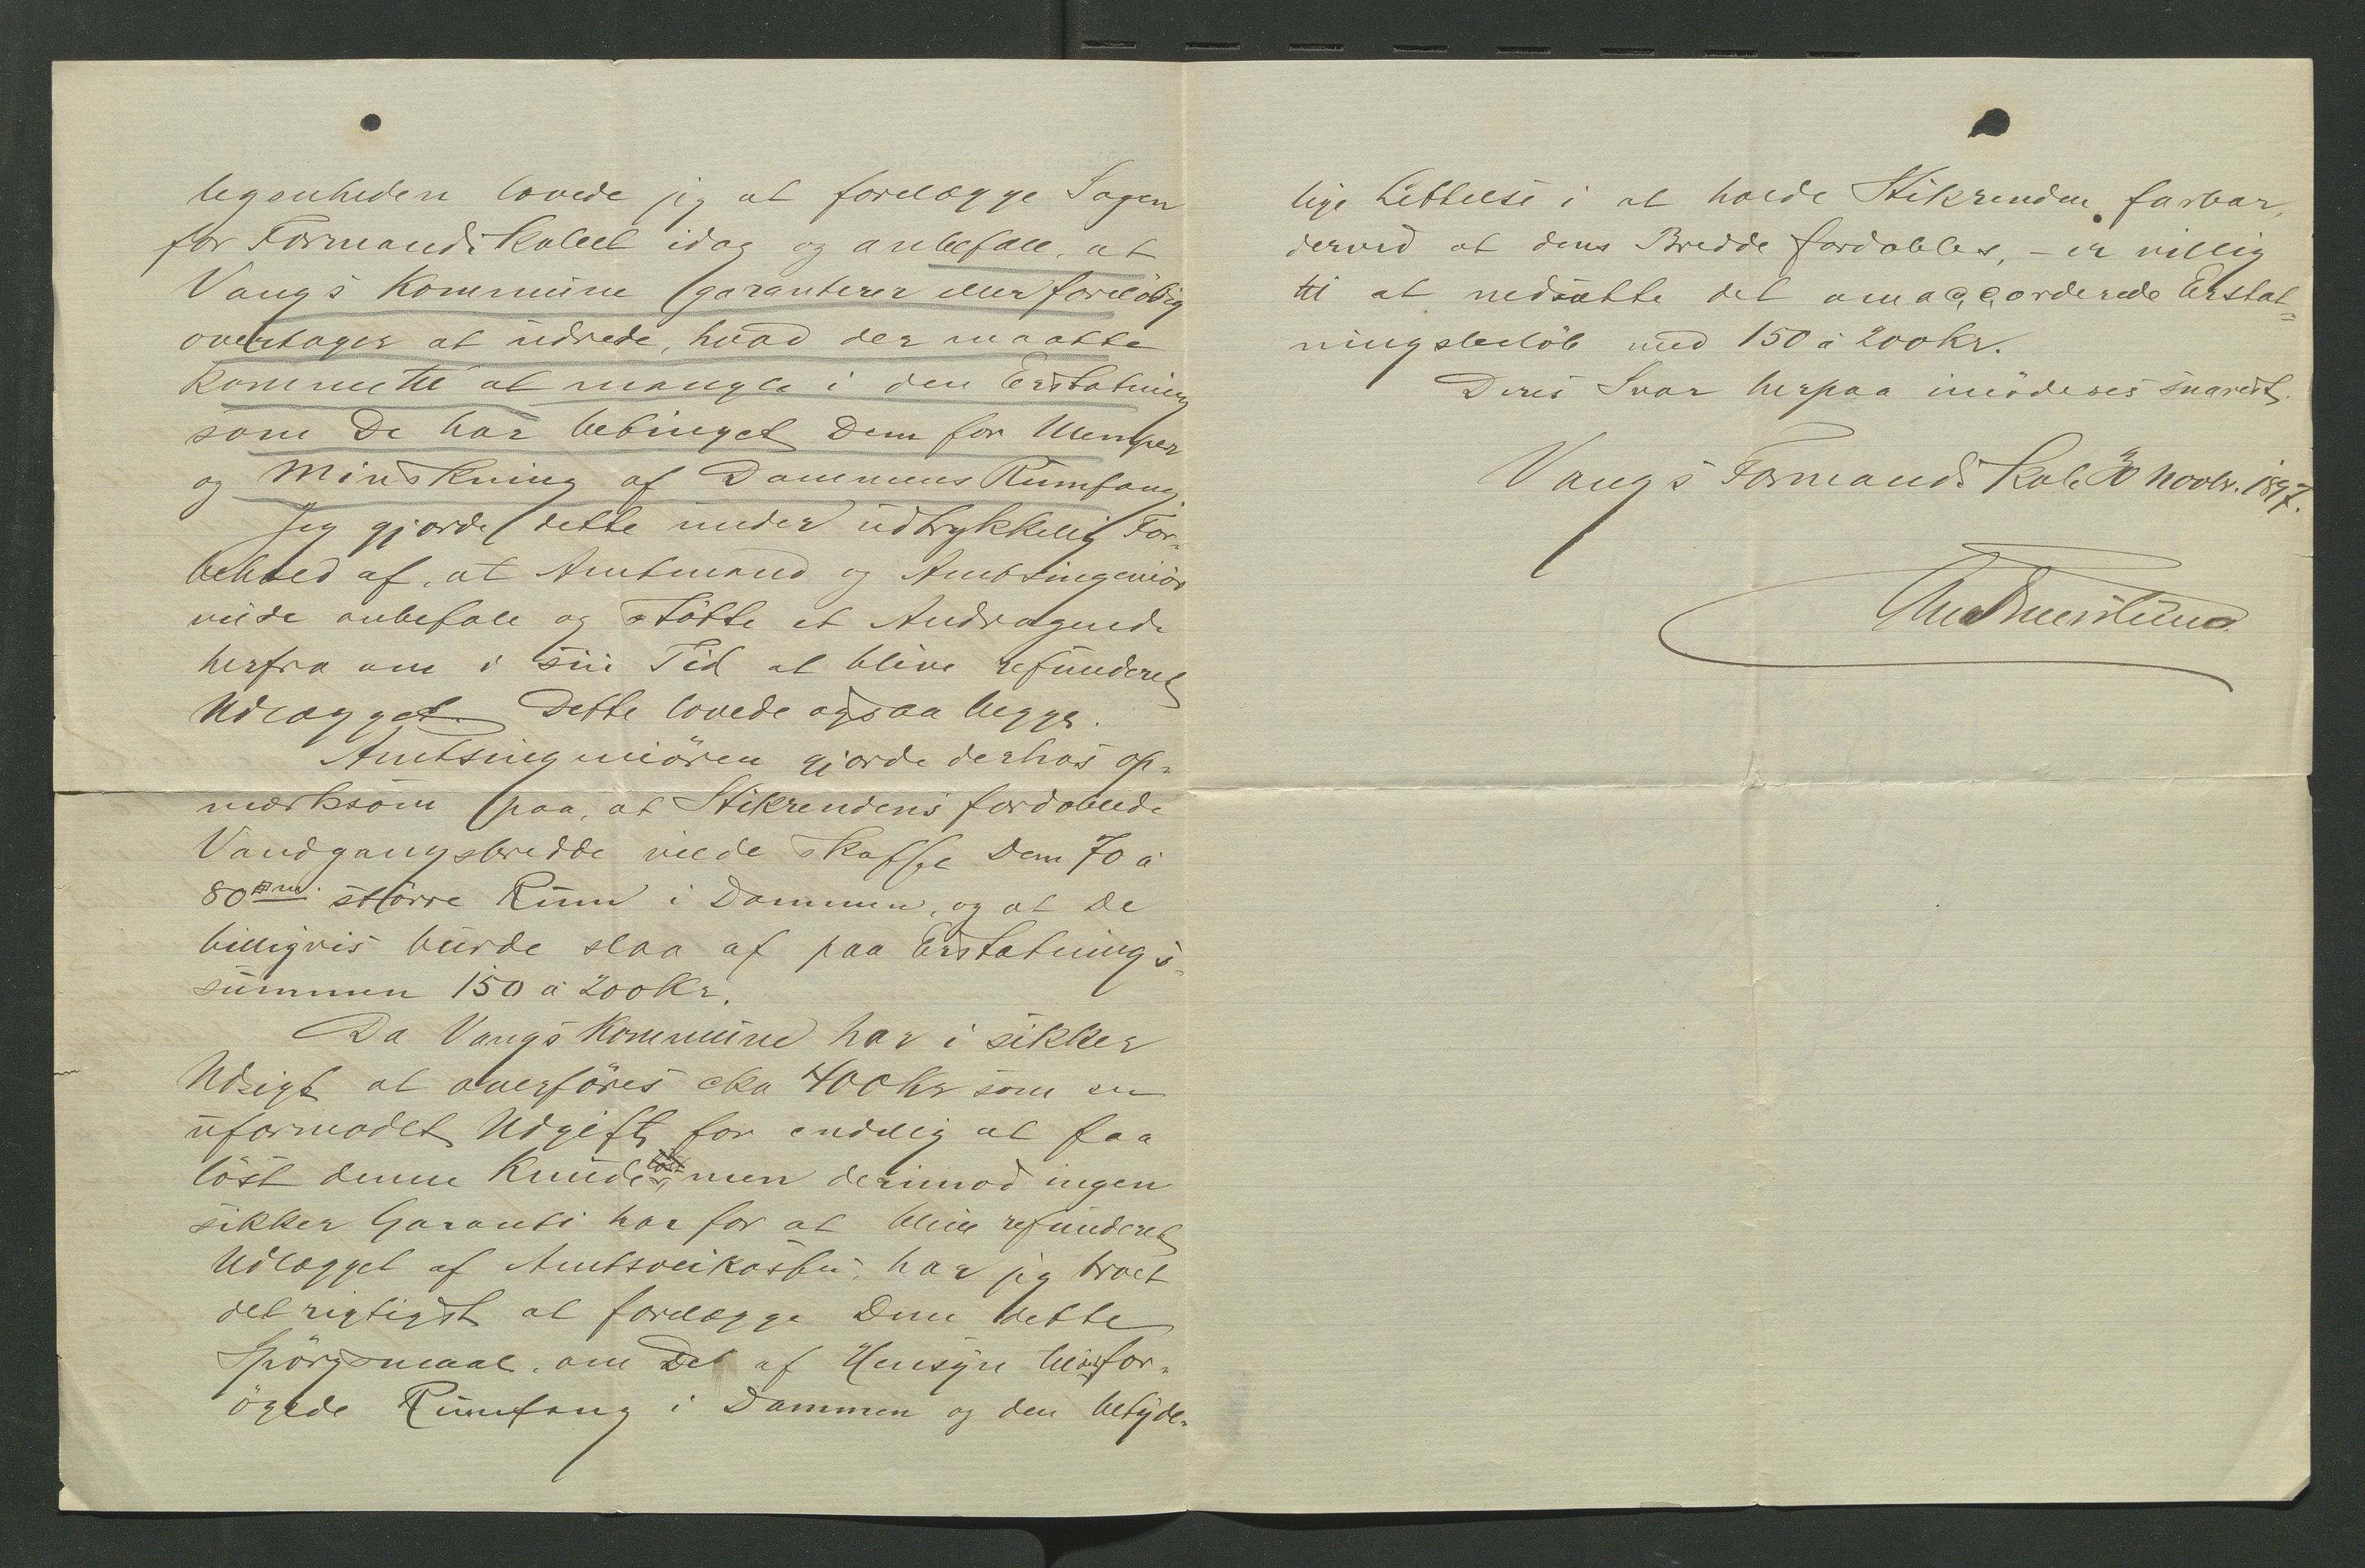 legenheden lovede jeg at forelægge Sagen
for Formandskabet idag og anbefale, at
Vangs Kommune garanterer eller foreløbig
overtager at udrede, hvad der maatte
komme til at mangle i den Erstatning
som De har betinget Dem for Ulemper
og Minskning af Dammens Rumfang.
Jeg gjorde dette under udtrykkelig For-
behold af, at Amtmand og Amtsingeniør
vilde anbefale og støtte et Andragende
herfra om i sin Tid at blive refunderet
Udlægget. Dette lovede ogsaa begge.
Amtsingeniøren gjorde derhos op-
mærksom paa, at Stikrendens fordoblede
Vandgangsbredde vilde skaffe Dem 70 à
80 m. større Rum i Dammen, og at De
billigvis burde slaa af paa Erstatnings-
summen 150 à 200 Kr.
Da Vangs Kommune har i sikker
Udsigt at overføres cka 400 Kr som en
uformodet Udgift for endelig at faa
løst denne Knude, men derimod ingen
sikker Garanti har for at blive refunderet
Udlægget af Amtsveikassen, har jeg troet
det rigtigst at forelægge Dem dette
Spørgsmaal, om De af Hensyn til for-
øgede Rumfang i Dammen og den betyde-
lige Lettelse i at holde Stikrenden farbar,
derved at dens Bredde fordobles, - er villig
til at nedsætte det omaccorderede Erstat-
ningsbeløb med 150 à 200 Kr.
Deres Svar herpaa imødeses snarest.
Vangs Formandskab 30 Novbr. 1897.